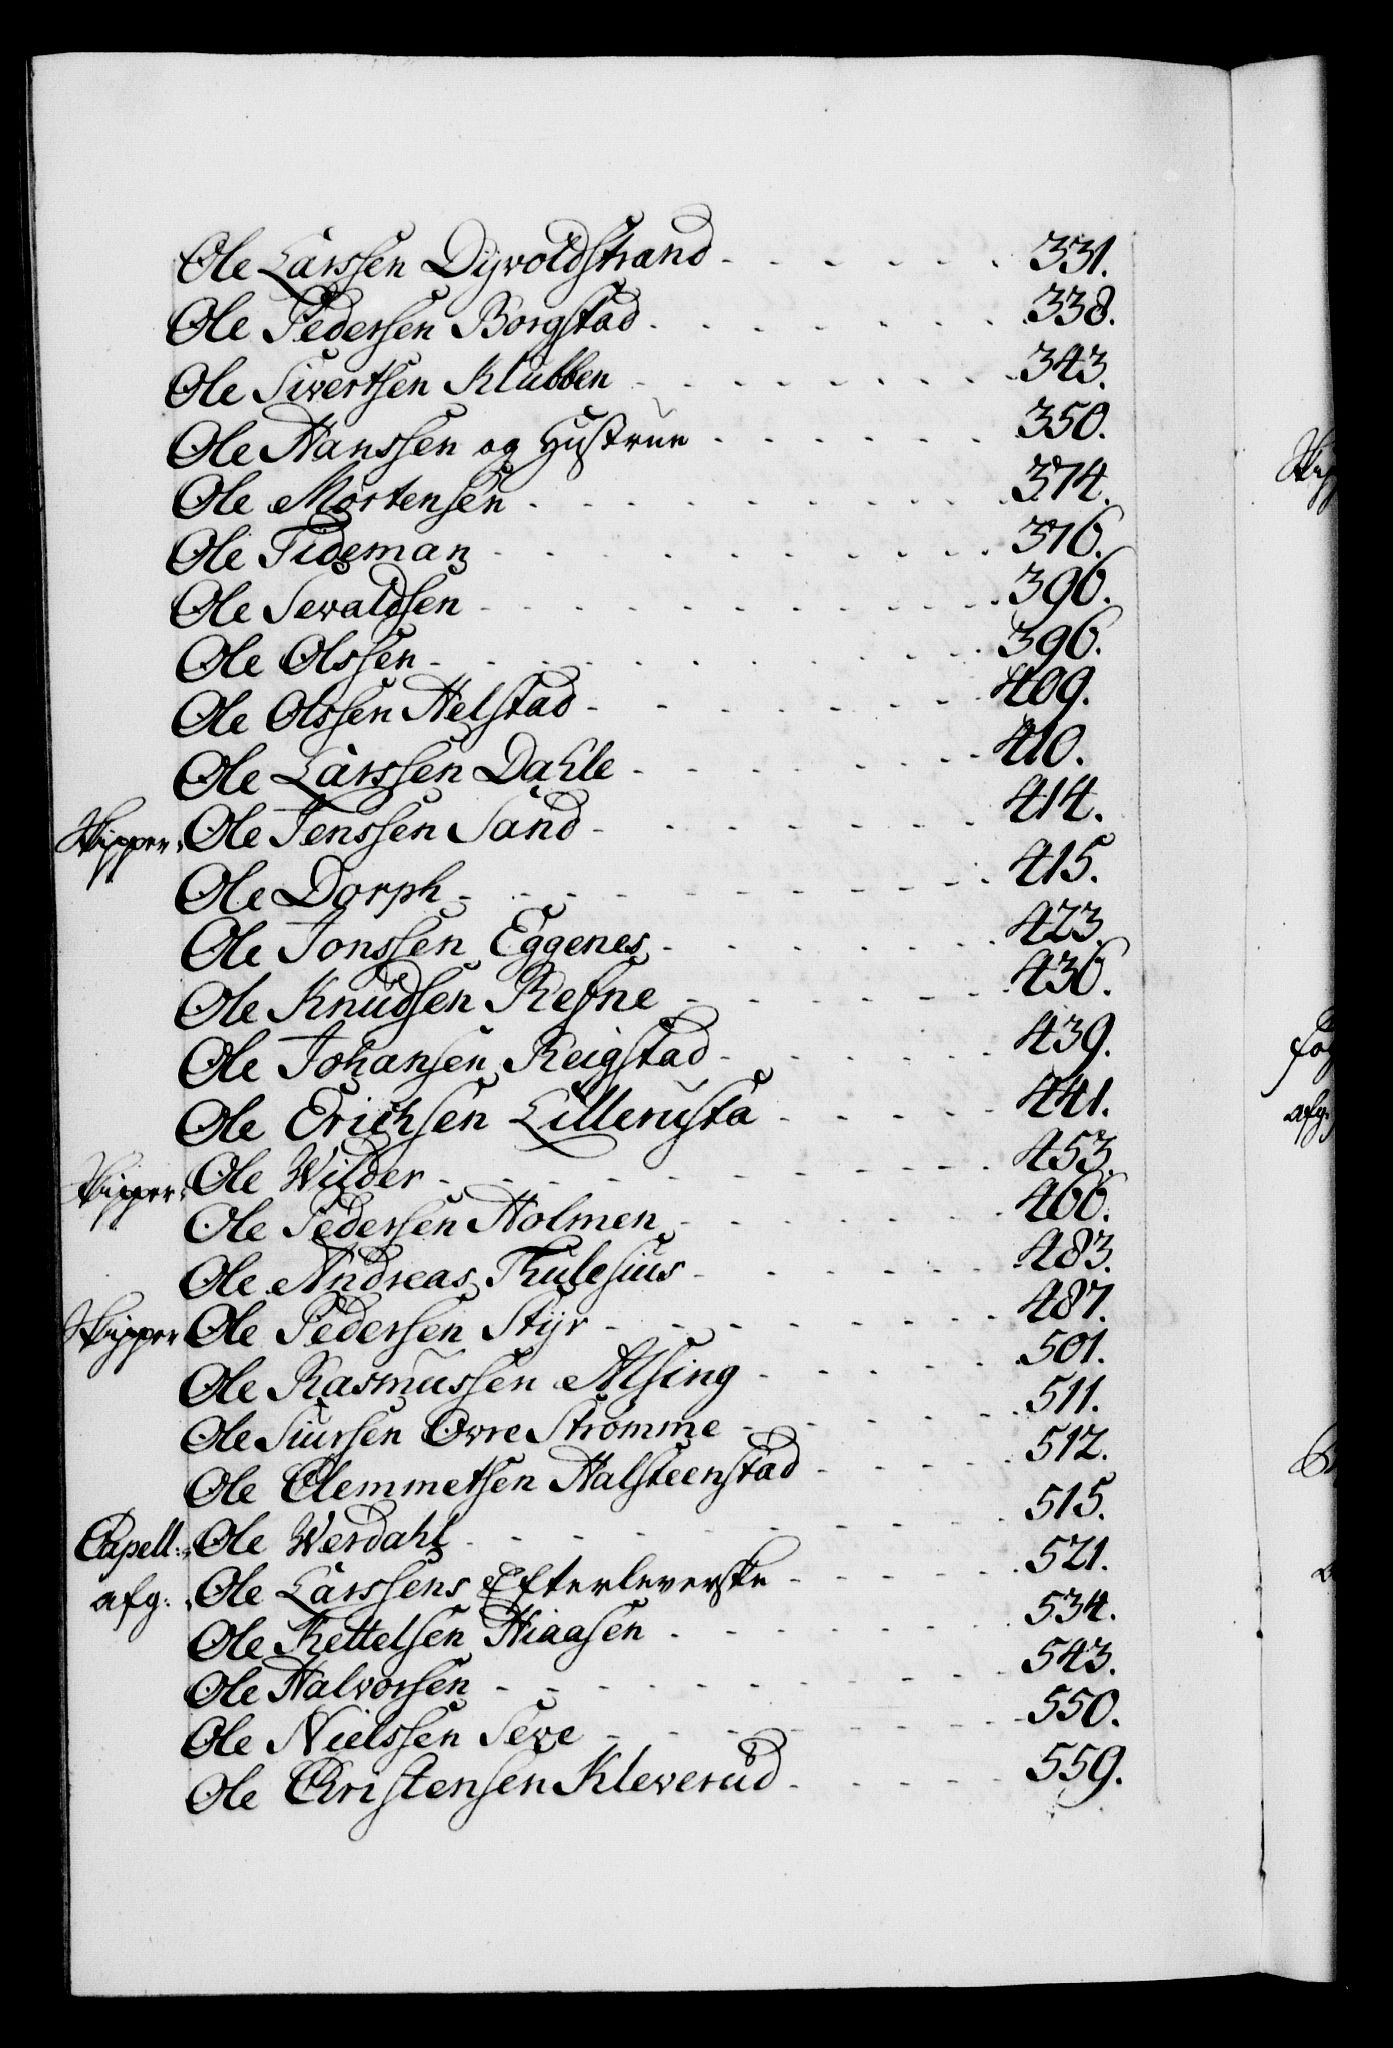 Ole Larssen Dyvoldstrand - - - - - - 331.
Ole Pedersen Borgstad - - - - - - - 338.
Ole Sivertsen Klubben - - - - - - - - 343.
Ole Hanssen og Hustrue - - - - - - 350.
Ole Mortensen - - - - - - - - - - 374.
Ole Tideman - - - - - - - - - - 376.
Ole Sevaldsen - - - - - - - - - - 396.
Ole Olssen - - - - - - - - - - - 396.
Ole Olssen Helstad - - - - - - - - 409.
Ole Larssen Dahle - - - - - - - 410.
Skipper: Ole Jenssen Sand - - - - - - - 414.
Ole Dorph - - - - - - - - - - 415.
Ole Jonssen Eggenes - - - - - - - 423.
Ole Knudsen Refne - - - - - - - 436.
Ole Johansen Reigstad - - - - - - 439.
Ole Erichsen Lillerusta - - - - - 441.
Skipper: Ole Wilder - - - - - - - - - - 453.
Ole Pedersen Holmen - - - - - - 466.
Ole Andreas Thulesius - - - - - - 483.
Skipper Ole Pedersen Styr - - - - - - - - 487.
Ole Rasmussen Alsing - - - - - 501.
Ole Siursen Ovre Stromme - - - - - 511.
Ole Clemmetsen Halsteenstad - - - - 512.
Capell: Ole Werdahl - - - - - - - - - 515.
afg: Ole Larssens Efterleverske - - - - - 521.
Ole Kettelsen Hiaasen - - - - - - 534.
Ole Halvorsen - - - - - - - - - 543.
Ole Nielssen Seve - - - - - - - - 550.
Ole Christensen Kleverud - - - - - 559.